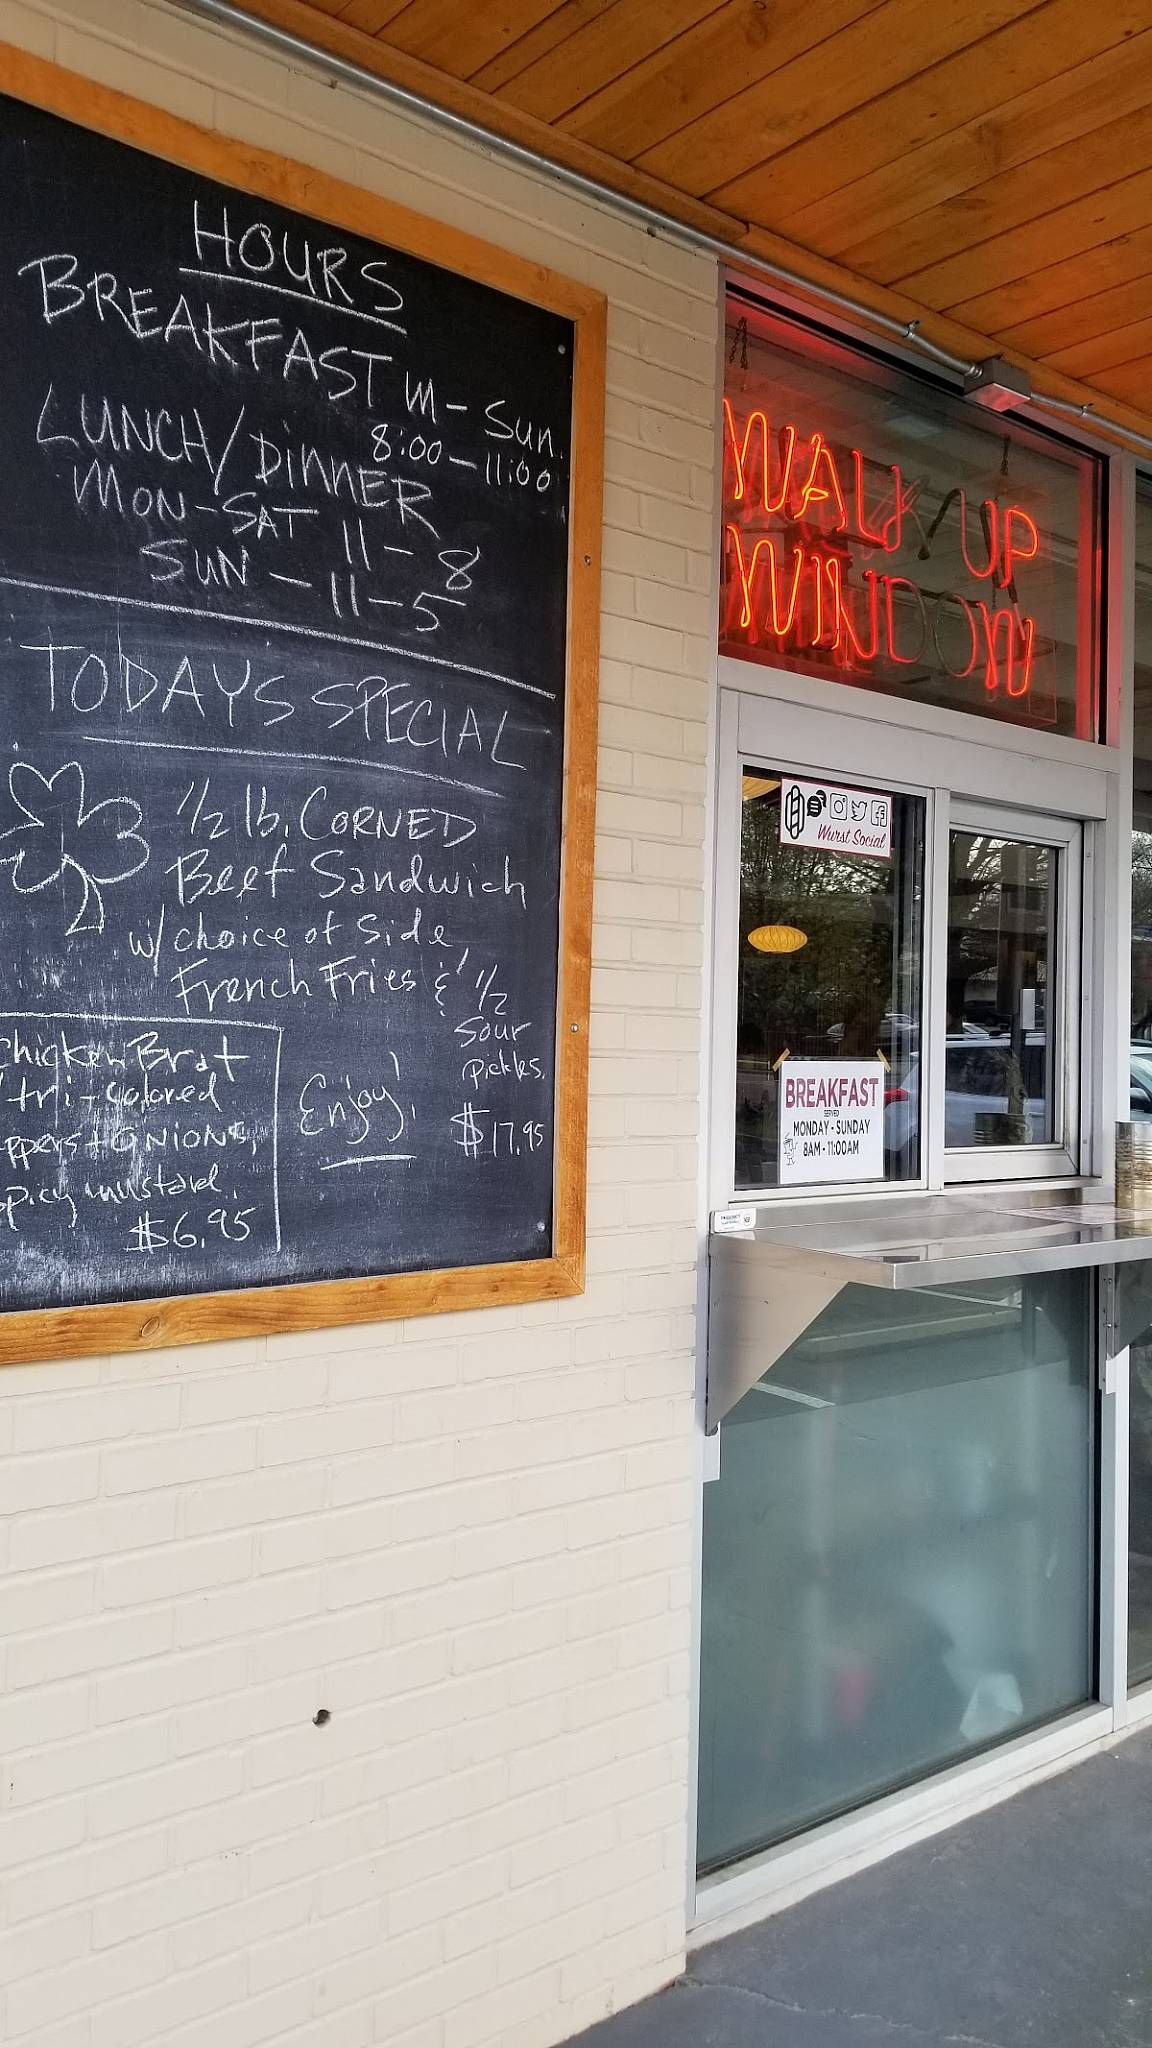 HOURS
BREAKFAST M-Sun.
8:00-11:00
LUNCH/DINNER
MON-SAT 11-8
SUN-11-5
TODAYS SPECIAL
1/2 lb. CORNED
Beef Sandwich
w/choice of Side,
French Fries & 1/2
Sour
pickles.
$17.95
Enjoy!
Chicken Brat
/tri-colored
ppers + ONIONS,
picy mustard.
$6.95
WALK UP
WINDOW
Wurst Social
BREAKFAST
SERVED
MONDAY - SUNDAY
8AM - 11:00AM